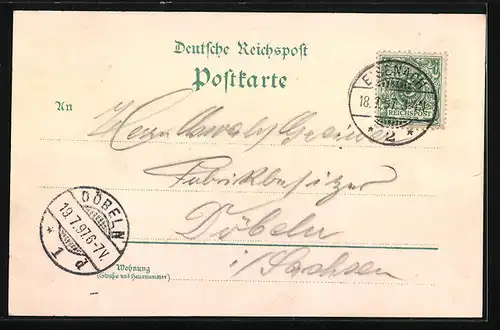 Deutsche Reichspost
Postkarte
EISENACH
18.7.97
* 2 *
REICHSPOST
An
Herrn Oswald
Fabrikbesitzer
Döbeln
i/Sachsen
DÖBELN
19.7.97.6-7V.
* 1 P
Wohnung
(Straße und Hausnummer)